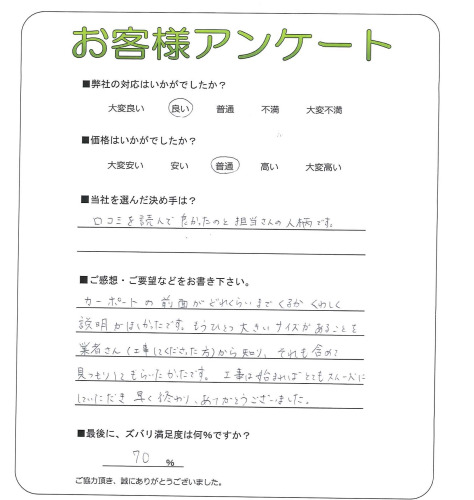 お客様アンケート
■弊社の対応はいかがでしたか？
大変良い 良い 普通 不満 大変不満
■価格はいかがでしたか？
大変安い 安い 普通 高い 大変高い
■当社を選んだ決め手は？
口コミを読んで良かったのと担当さんの人柄です。
■ご感想・ご要望などをお書き下さい。
カーポートの前面がどれくらいまでくるかくわしく
説明がほしかったです。もうひとつ大きいサイズがあることを
業者さん（工事してくださった方）から知り、それも含めて
見つもりしてもらいたかったです。工事は始まればとてもスムーズに
していただき早く終わり、ありがとうございました。
■最後に、ズバリ満足度は何％ですか？
70 %
ご協力頂き、誠にありがとうございました。